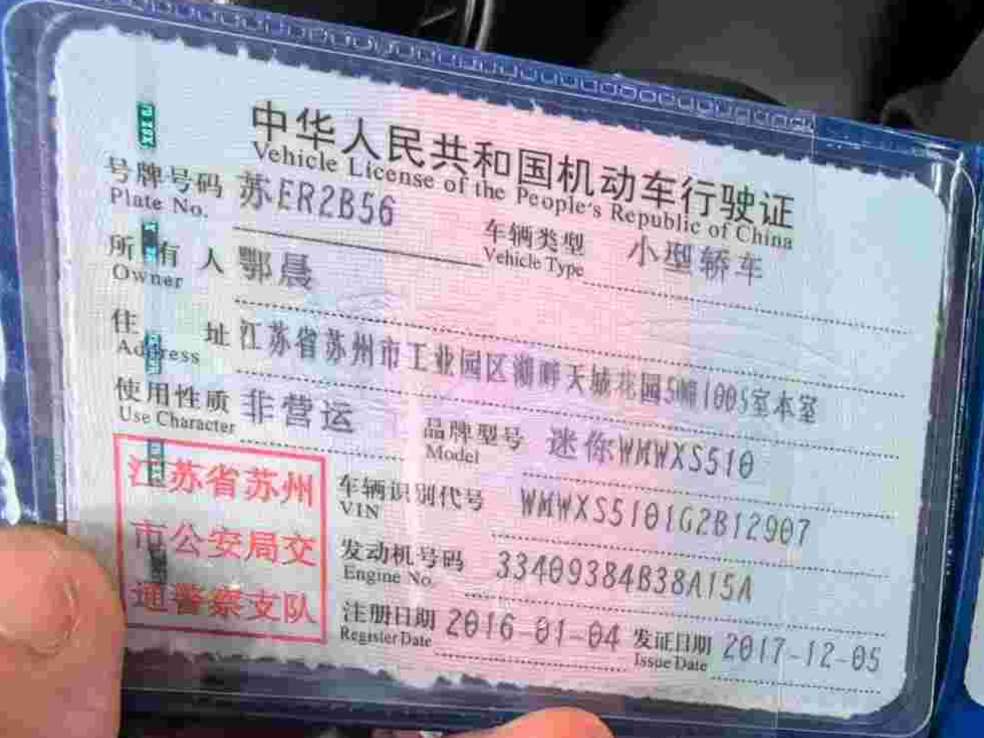 中华人民共和国机动车行驶证
Vehicle License of the People's Republic of China
号牌号码 苏ER2B56 车辆类型 小型轿车
Plate No. Vehicle Type
所有人 鄂晨
Owner
住址 江苏省苏州市工业园区湖畔天城花园5幢1005室本室
Address
使用性质 非营运 品牌型号 迷你WMWXS510
Use Character Model
江苏省苏州
市公安局交
通警察支队
车辆识别代号 WMWXS5101G2B12907
VIN
发动机号码 33409384B38A15A
Engine No.
注册日期 2016-01-04 发证日期 2017-12-05
Register Date Issue Date